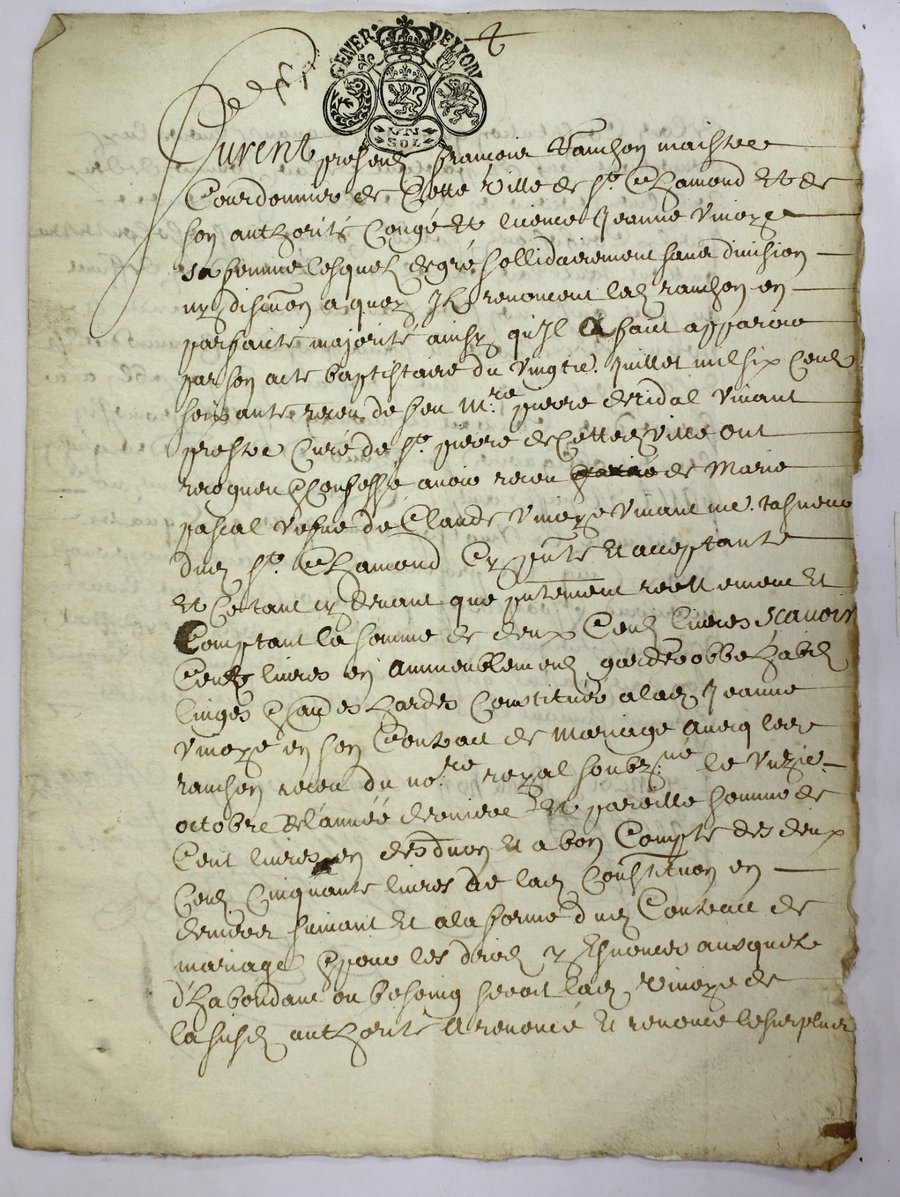 GENER. DE LION
UN
SOL
Furent presentz françois Ranchon maistre
Courdonnier de Cette Ville de St Chamond Et de
son authorité Congé Et licence Jeanne Vinoze
sa femme lesquelz de gré sollidairement sans division
ny discution a quoy Ilz renoncent led ranchon en
parfaite majorité ainsy qu'Jl A faict apparoir
par son acte baptistaire du vingtie. Juillet mil six Centz
soixante receu de feu Mre pierre deridal vivant
prestre Curé de St pierre de Cette d ville ont
recogneu & Confessé avoir receu de Marie
pascal vefve de Claude Vinoze vivant me.
dud St Chamond Cy pnte Et acceptante
Et Ce tant cy devant que pntement reellement Et
Comptant la somme de deux Centz livres scavoir
Centz livres en Ammeublementz garderobbe habitz
linges & aues hardes Constituées a lad Jeanne
Vinoze en son Contract de mariage avecq led
ranchon receu du nore royal soubzné le unzie
octobre de l'année derniere Et pareille somme de
Cent livres en desduon Et a bon Compte des deux
Centz Cinquante livres de lad Constituon en
deniers suivant Et a la forme dud Contract de
mariage & pour les droitz y Esnoncés ausquelz
d'habondant ou besoing seroit lad Vinoze de
la susd authorité A renoncé Et renonce le surplus